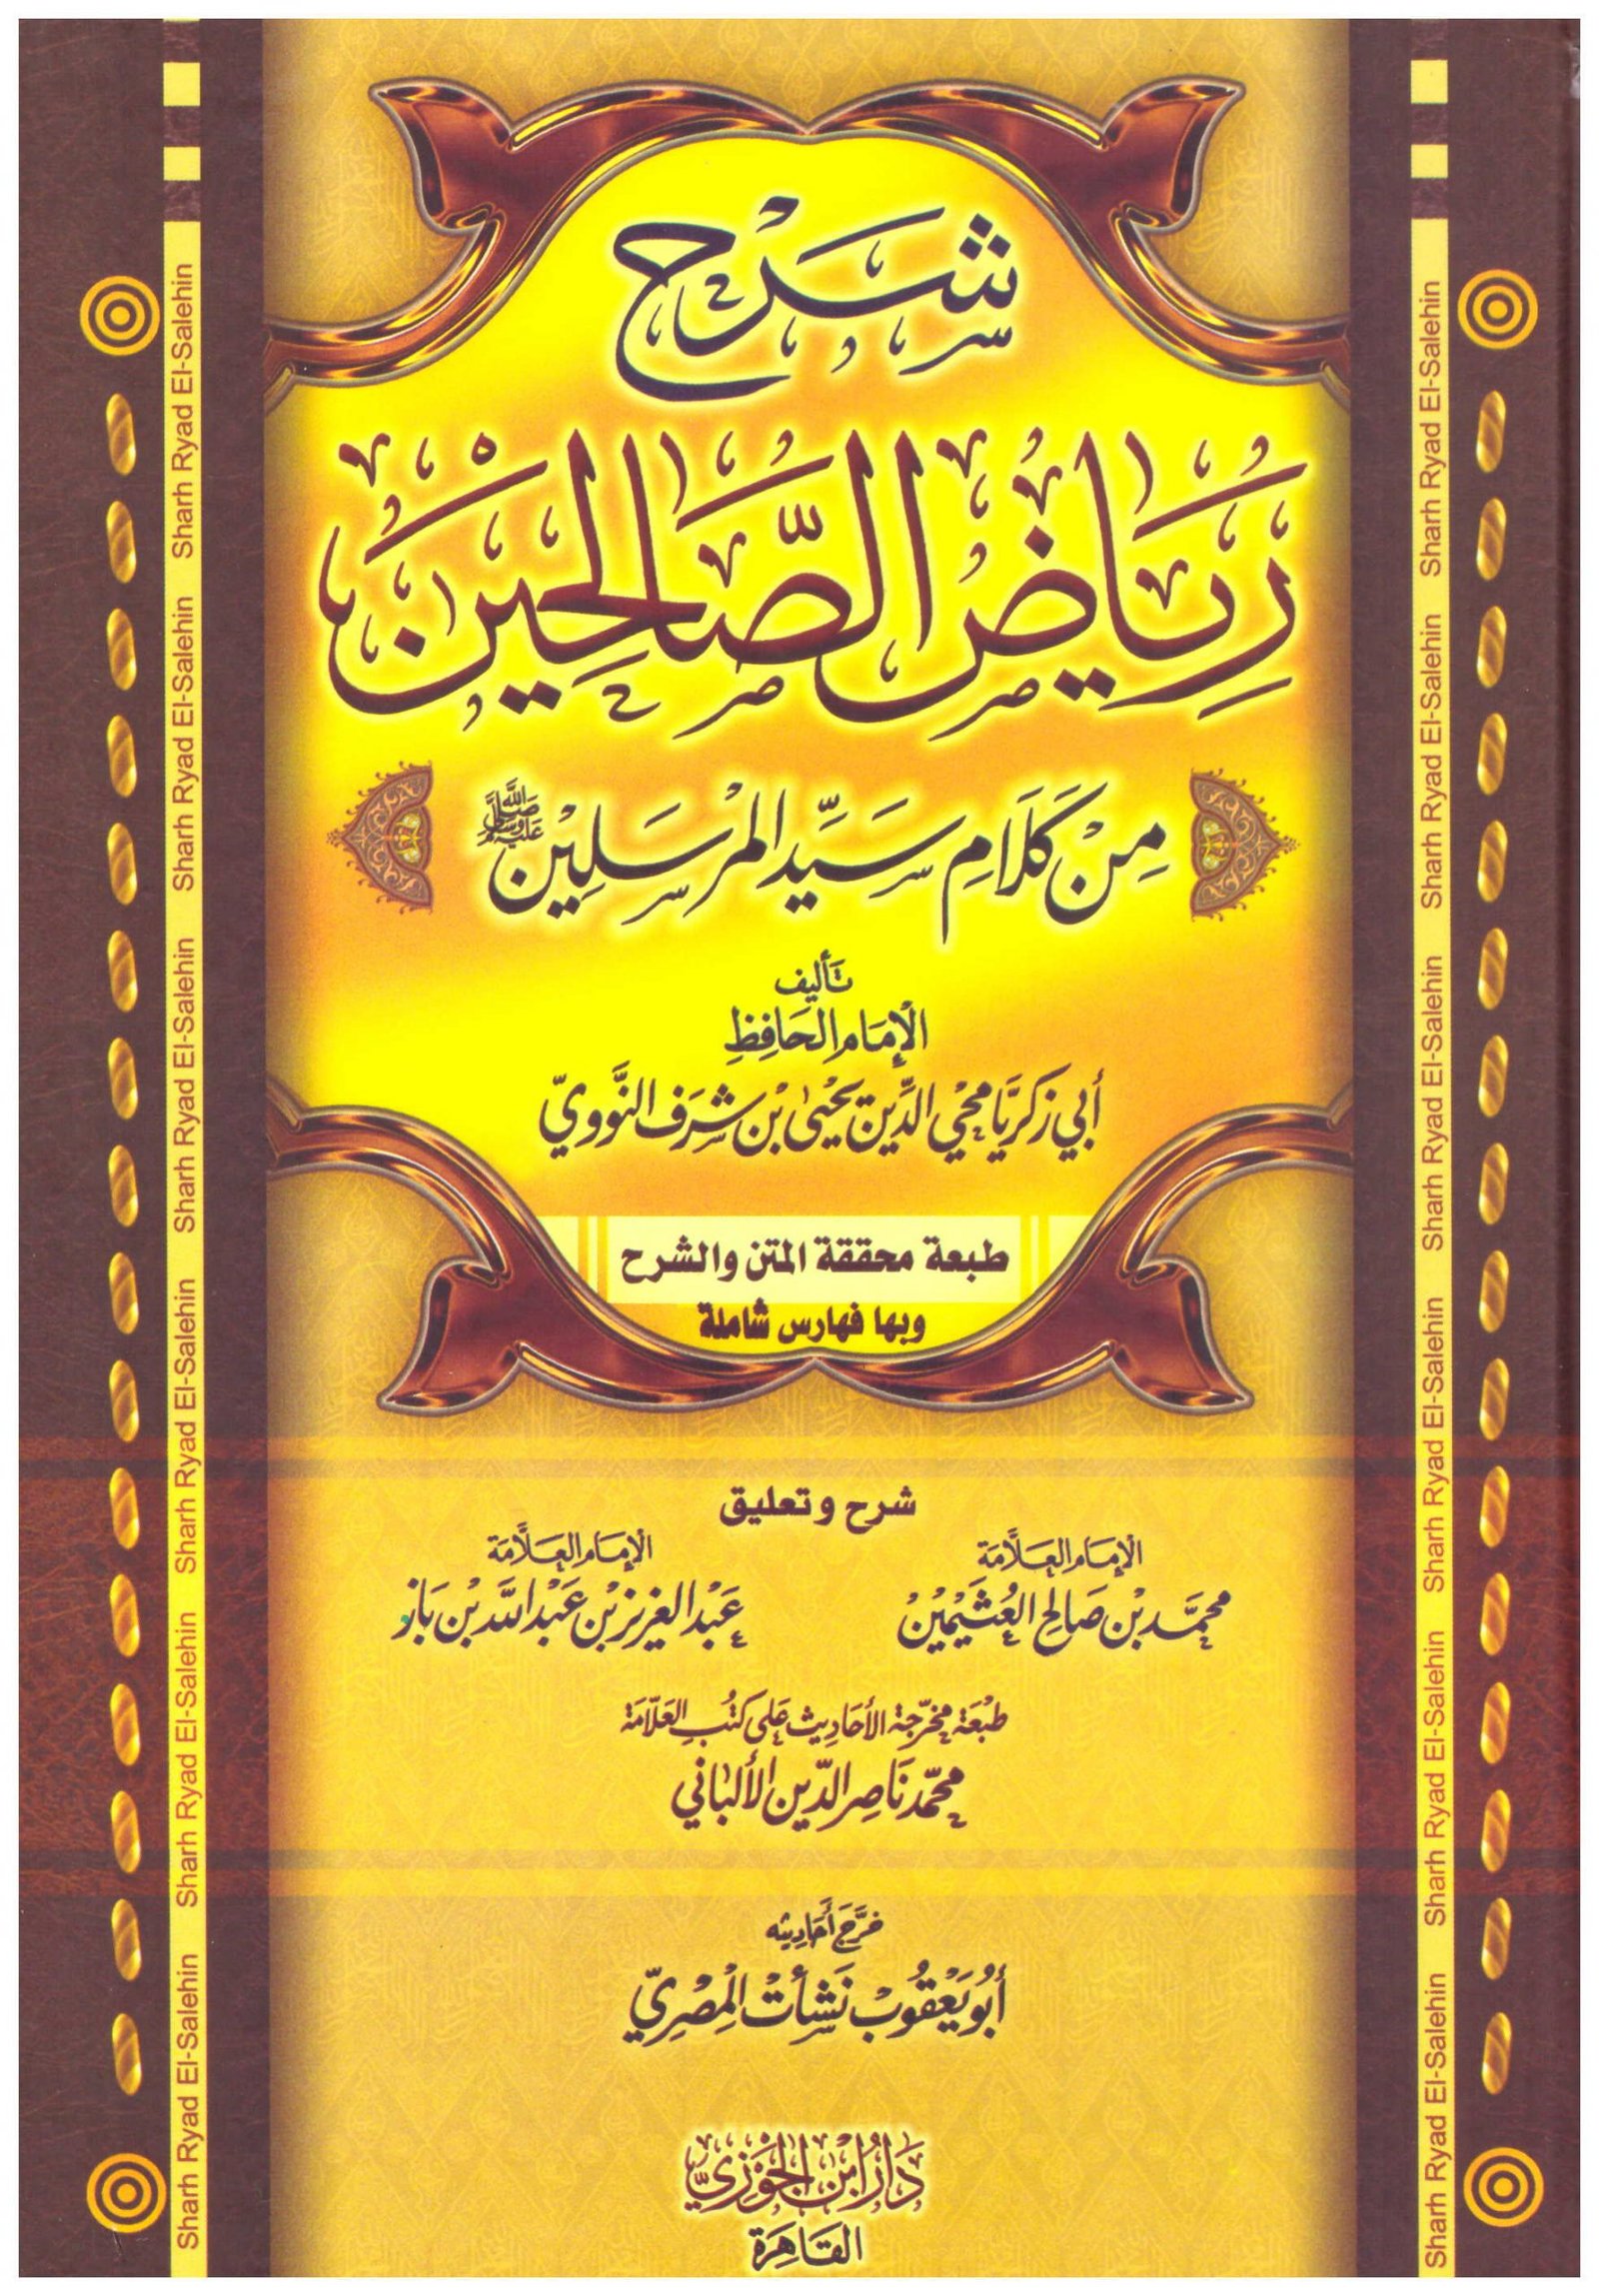 شَرح
رِيَاضِ الصَّالِحِيْنَ
مِنْ كَلَامِ سَيِّدِ المُرْسَلِيْن ﷺ
تَأليف
الْإِمَامِ الحَافِظِ
أبي زَكَريَّا مُحْيِي الدِّين يَحْيَىٰ بْن شَرَف النَّوَوِيّ
طبعة محققة المتن والشرح
وبها فهارس شاملة
شرح وتعليق
الإِمَام العَلَّامَة
مُحَمَّد بْن صَالِح العُثَيْمِيْن
الإِمَام العَلَّامَة
عَبْد العَزِيز بْن عَبْد اللَّه بْن بَاز
طَبْعَة مُخَرَّجَة الأحَادِيث عَلَى كُتُبِ العَلَّامَة
مُحَمَّد نَاصِر الدِّين الأَلْبَانِي
خَرَّجَ أَحَادِيثه
أَبُو يَعْقُوبْ نَشْأَتْ المِصْرِيّ
دَارُ ابْن الجَوْزِيّ
القَاهِرَة
Sharh Ryad El-Salehin Sharh Ryad El-Salehin Sharh Ryad El-Salehin Sharh Ryad El-Salehin Sharh Ryad El-Salehin Sharh Ryad El-Salehin
Sharh Ryad El-Salehin Sharh Ryad El-Salehin Sharh Ryad El-Salehin Sharh Ryad El-Salehin Sharh Ryad El-Salehin Sharh Ryad El-Salehin